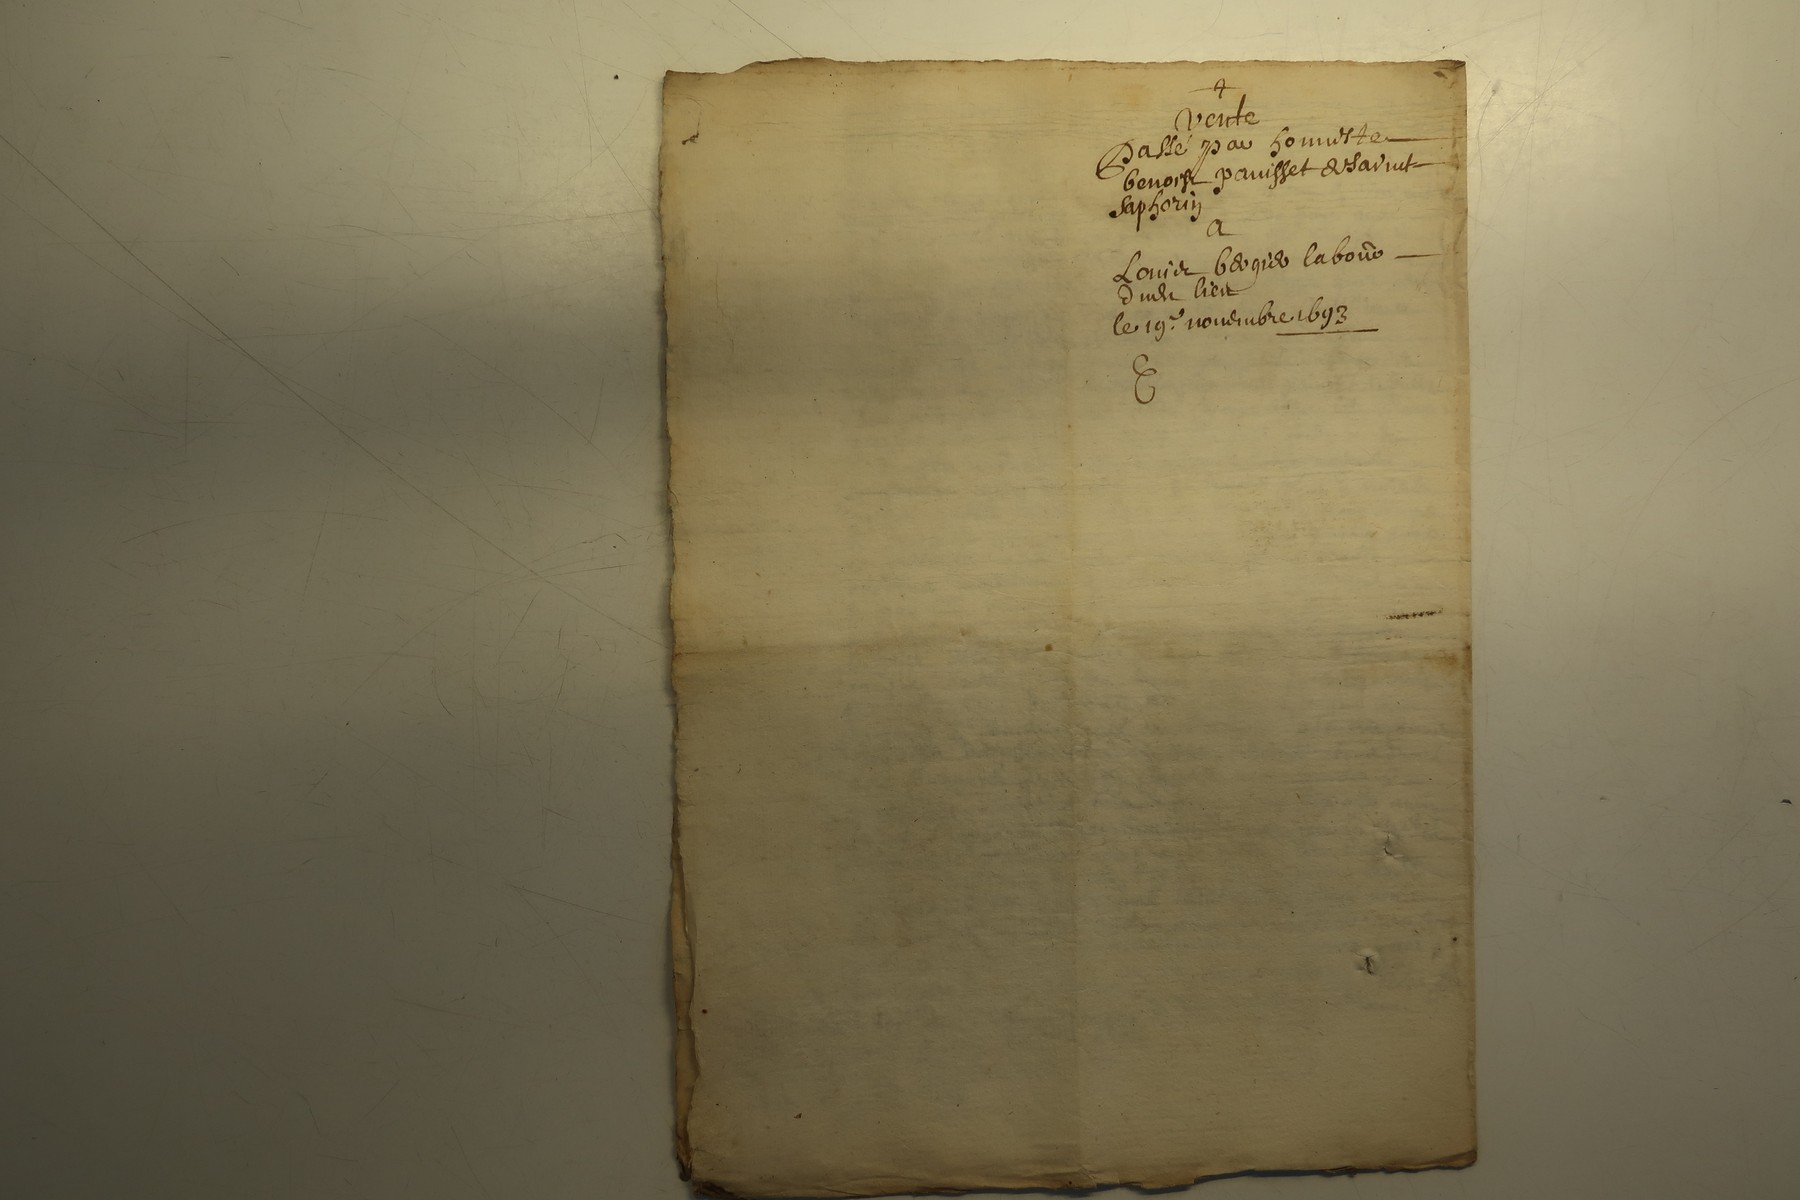 +
Vente
Passé par honneste
benoist panisset de Sainct
Saphorin
a
Louis bergier labour
dudt lieu
le 19e novembre 1693